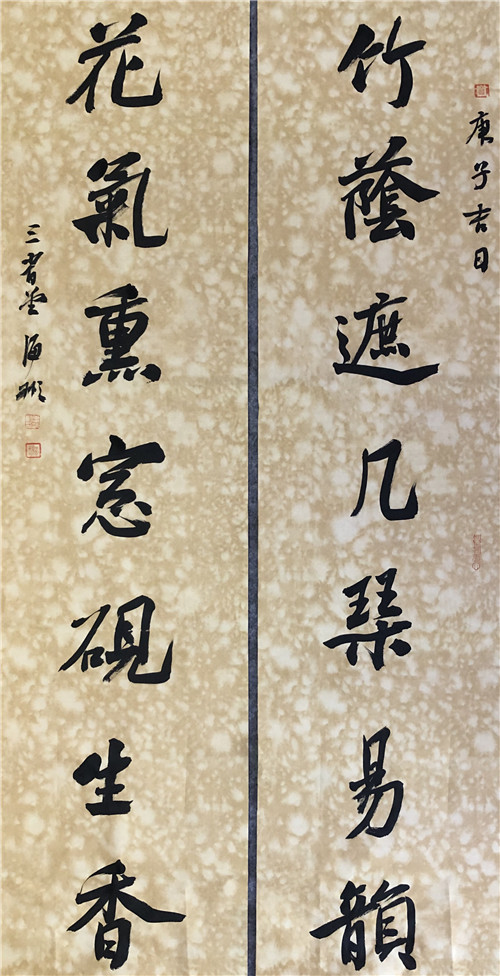 庚子吉日
竹蔭遮几琹易韻
花氣熏窓硯生香
三省堂 海彬